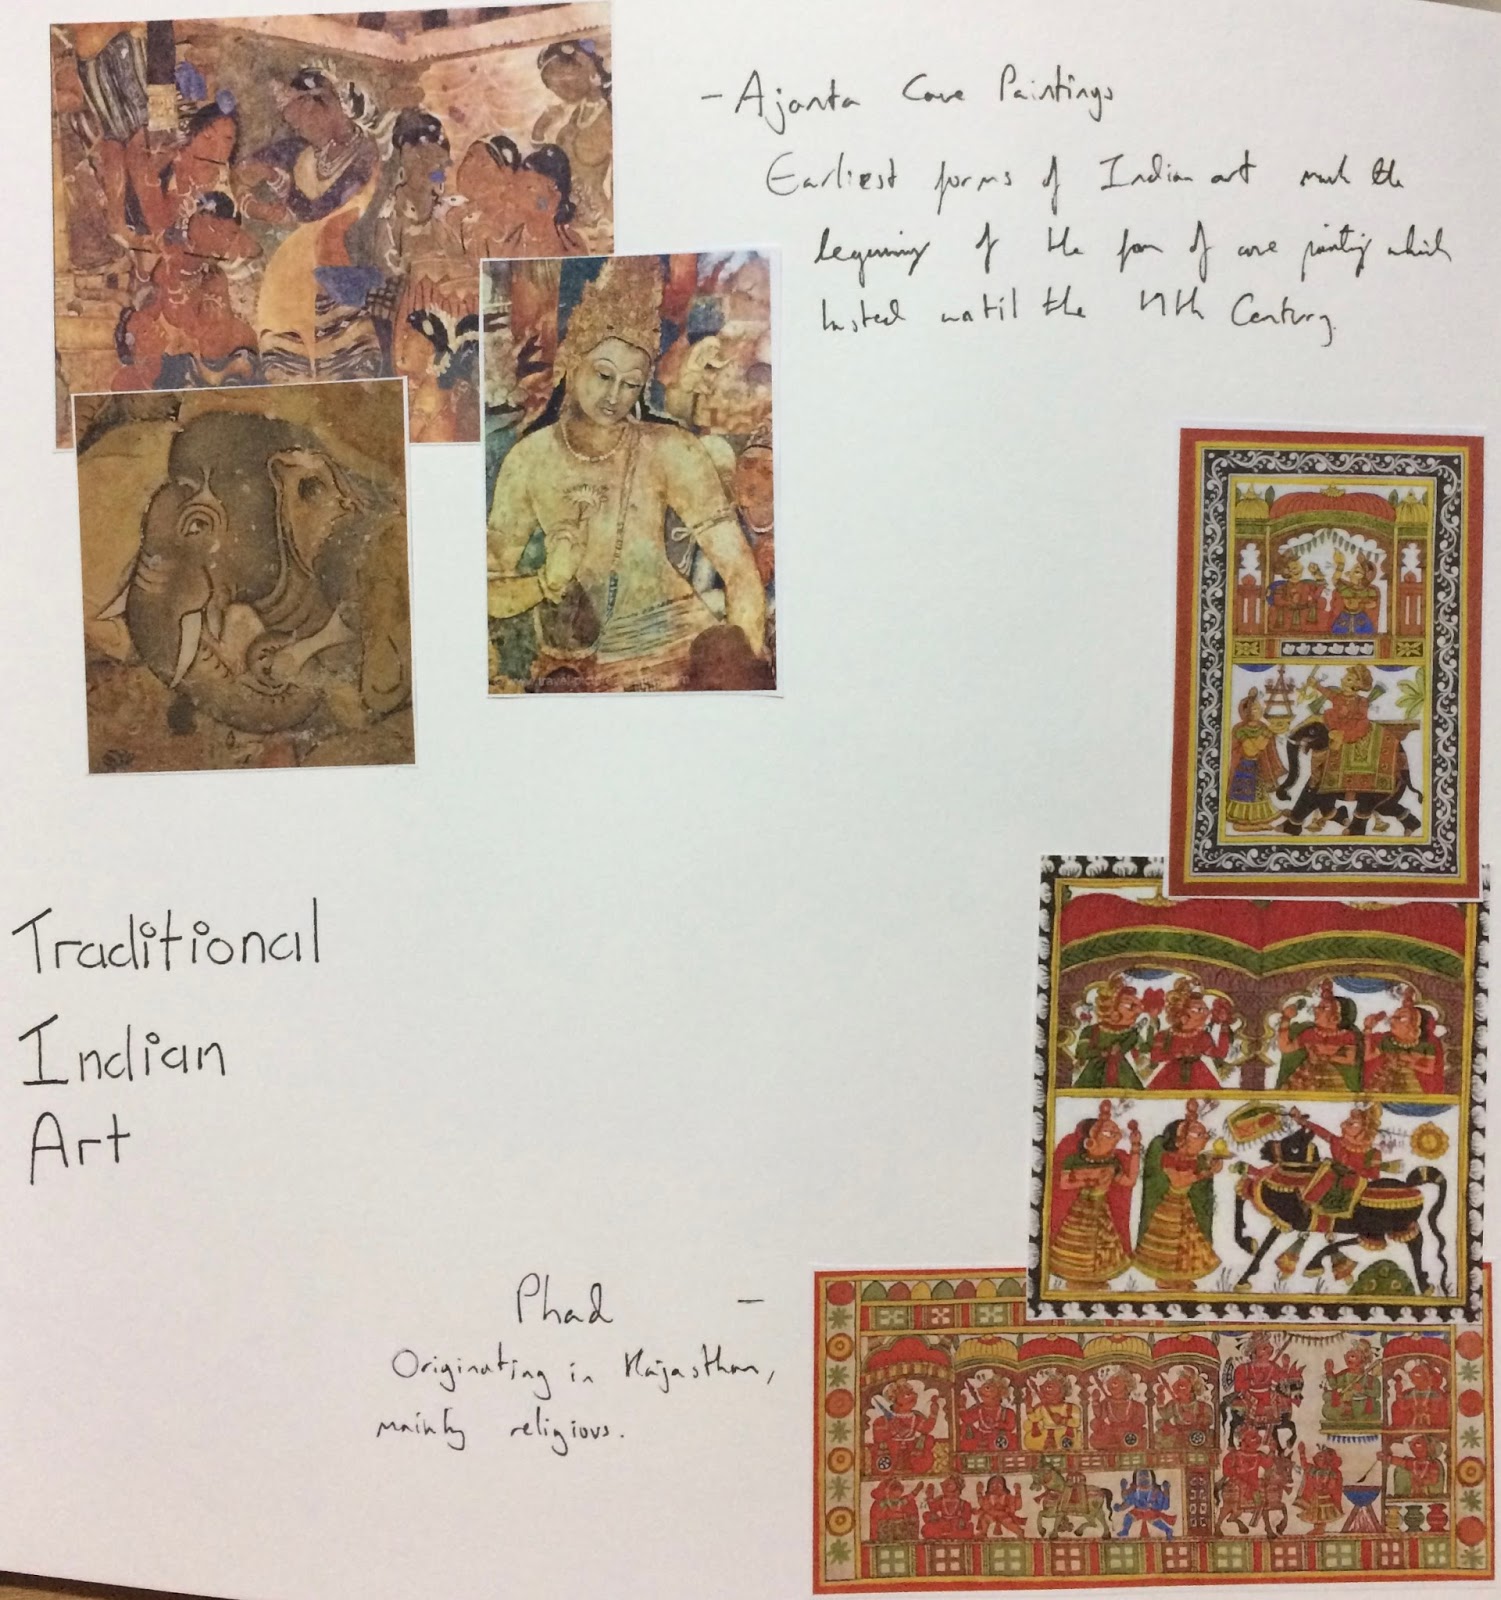 - Ajanta Cave Paintings
Earliest forms of Indian art mark the
beginning of the form of cave painting which
lasted until the 11th Century.
Traditional
Indian
Art
Phad -
Originating in Rajasthan,
mainly religious.